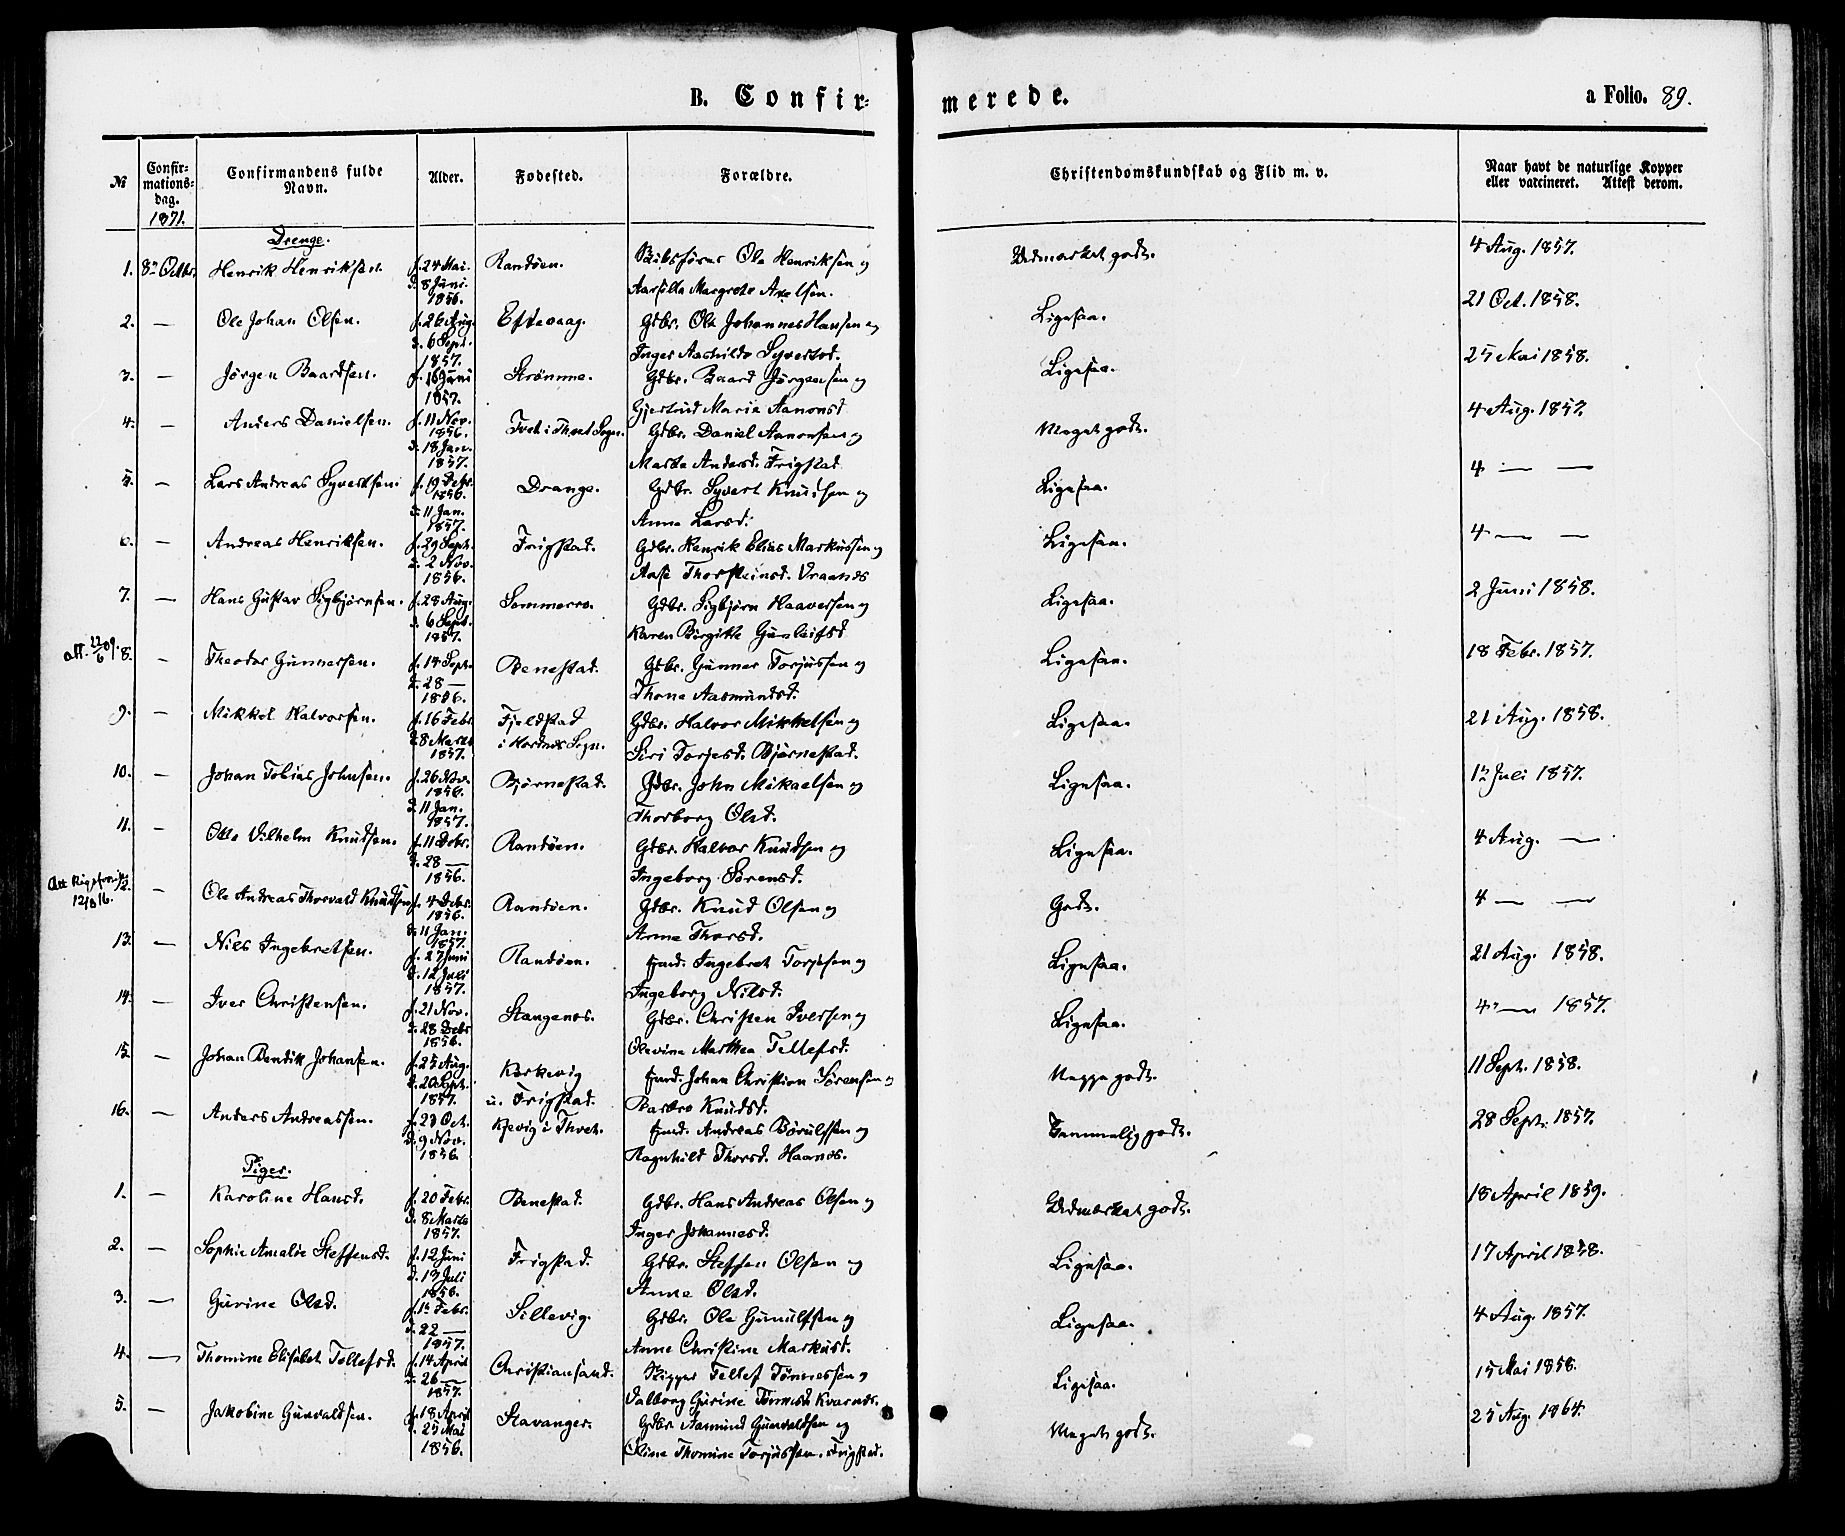 B. Confir- merede. a Folio. 89.
No Confir-mations-dag. 1871. Confirmandens fulde Navn. Alder. Fødested. Forældre. Christendomskundskab og Flid m. v. Naar havt de naturlige Kopper eller vaccineret. Attest derom.
Drenge.
1. 8de Octbr. Henrik Henriksen. f. 24 Mai. Randøen. Ole Henriksen og Udmærket godt. 4 Aug. 1857.
d. 8 Juni. 1856. Margrete Axelsen.
2. — Ole Johan Olsen. f. 26 Aug. Eftevaag. Gdbr. Ole Johannes Hansen og Ligesaa. 21 Oct. 1858.
d. 6 Sept. 1857. Inger Aashilds Syvertsd.
3. — Jørgen Baardsen. f. 16 Juni 1857. Strømme. Gdbr. Baard Jørgensen og Ligesaa. 25 Mai 1858.
Gjertrud Maria Aanonsd.
4. — Anders Danielsen. f. 11 Nov. 1856. Tveit i Thveit Sogn. Gdbr. Daniel Aanonsen og Meget godt. 4 Aug. 1857.
d. 18 Jan. 1857. Marte Andersd. Frigstad
5. — Lars Andreas Syvertsen. f. 19 Debr. 1856. Drange. Gdbr. Syvert Knudsen og Ligesaa. 4 — —
d. 11 Jan. 1857. Anne Larsd.
6. — Andreas Henriksen. f. 29 Sept. Frigstad. Gdbr. Henrik Elias Markussen og Ligesaa. 4 — —
d. 2 Nov. 1856. Aase Thorsteinsd. Vraanes
7. — Hans Gustav Sigbjørnsen. f. 28 Aug. Sommerro. Gdbr. Sigbjørn Haaversen og Ligesaa. 2 Juni 1858.
d. 6 Sept. 1857. Karen Birgitte Gunleifsd.
att. 22/6 09. 8. — Theodor Gunnersen. f. 14 Sept. Benestad. Gdbr. Gunner Torjussen og Ligesaa. 18 Febr. 1857.
d. 28 — 1856. Thone Aasmundsd.
9. — Mikkel Halvorsen. f. 16 Febr. Fjeldstad Gdbr. Halvor Mikkelsen og Ligesaa. 21 Aug. 1858.
d. 8 Marts 1857. i Sogn. Siri Torjesd. Bjørnestad.
10. — Johan Tobias Johnsen. f. 26 Nov. 1856. Bjørnestad. Gdbr. John Mikaelsen og Ligesaa. 12 Juli 1857.
d. 11 Jan. 1857. Thorborg Olsd.
11. — Otto Vilhelm Knudsen. f. 11 Debr. Randøen. Gdbr. Halvor Knudsen og Ligesaa. 4 Aug. —
d. 28 — 1856. Ingeborg Sørensd.
Att 12/8 16. 12. — Ole Andreas Thorvald Knudsen f. 4 Debr. 1856. Randøen. Gdbr. Knud Olsen og Godt. 4 — —
d. 11 Jan. 1857. Anne Thorsd.
13. — Nils Ingebretsen. f. 27 Juni Randøen. Ingebret Torjesen og Ligesaa. 21 Aug. 1858.
d. 12 Juli 1857. Ingeborg Nilsd.
14. — Iver Christensen. f. 21 Nov. Stangenes. Gdbr. Christen Iversen og Ligesaa. 4 — 1857.
d. 28 Debr 1856. Olevine Marthea Tellefsd.
15. — Johan Bendik Johansen. f. 25 Aug. Korkevig Johan Christian Sørensen og Neppe godt. 11 Sept. 1858.
d. 20 Sept. 1857. u. Frigstad. Barbro Knudsd.
16. — Anders Andreassen. f. 23 Oct. Kjevig i Thveit. Andreas Børulfsen og Temmelig godt. 28 Sept. 1857.
d. 9 Nov. 1856. Ragnhild Thorsd. Haanes.
Piger.
1. — Karoline Hansd. f. 20 Febr. Benestad. Gdbr. Hans Andreas Olsen og Udmærket godt. 18 April 1859.
d. 8 Marts 1857. Inger Johannesd.
2. — Sophie Amalie Steffensd. f. 12 Juni Frigstad. Gdbr. Steffen Olsen og Ligesaa. 17 April 1858.
d. 13 Juli 1856. Anne Olsd.
3. — Gurine Olsd. f. 12 Febr. Sillevig. Gdbr. Ole Gunulfsen og Ligesaa. 4 Aug. 1857.
d. 22 — 1857. Anne Christine Markusd.
4. — Thomine Elisabet Tellefsd. f. 14 April Christiansand. Rigger Tellef Tønnessen og Ligesaa. 15 Mai 1858.
d. 26 — 1857. Valborg Gurine Tønnesd. Kvarnes.
5. — Jakobine Gunvaldsen. f. 18 April Stavanger. Gdbr. Aamund Gunvaldsen og Meget godt. 25 Aug. 1864.
d. 25 Mai 1856. Oline Thomine Torjussen. Frigstad.